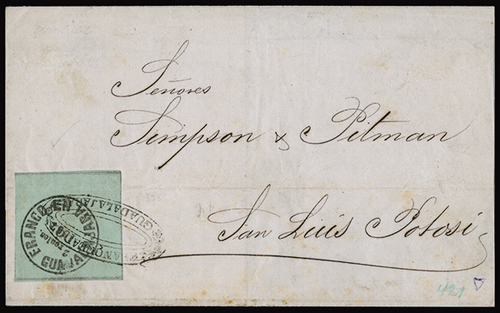 Señores
Simpson & Pitman
San Luis Potosí
FRANCO EN
GUADALAJARA
421